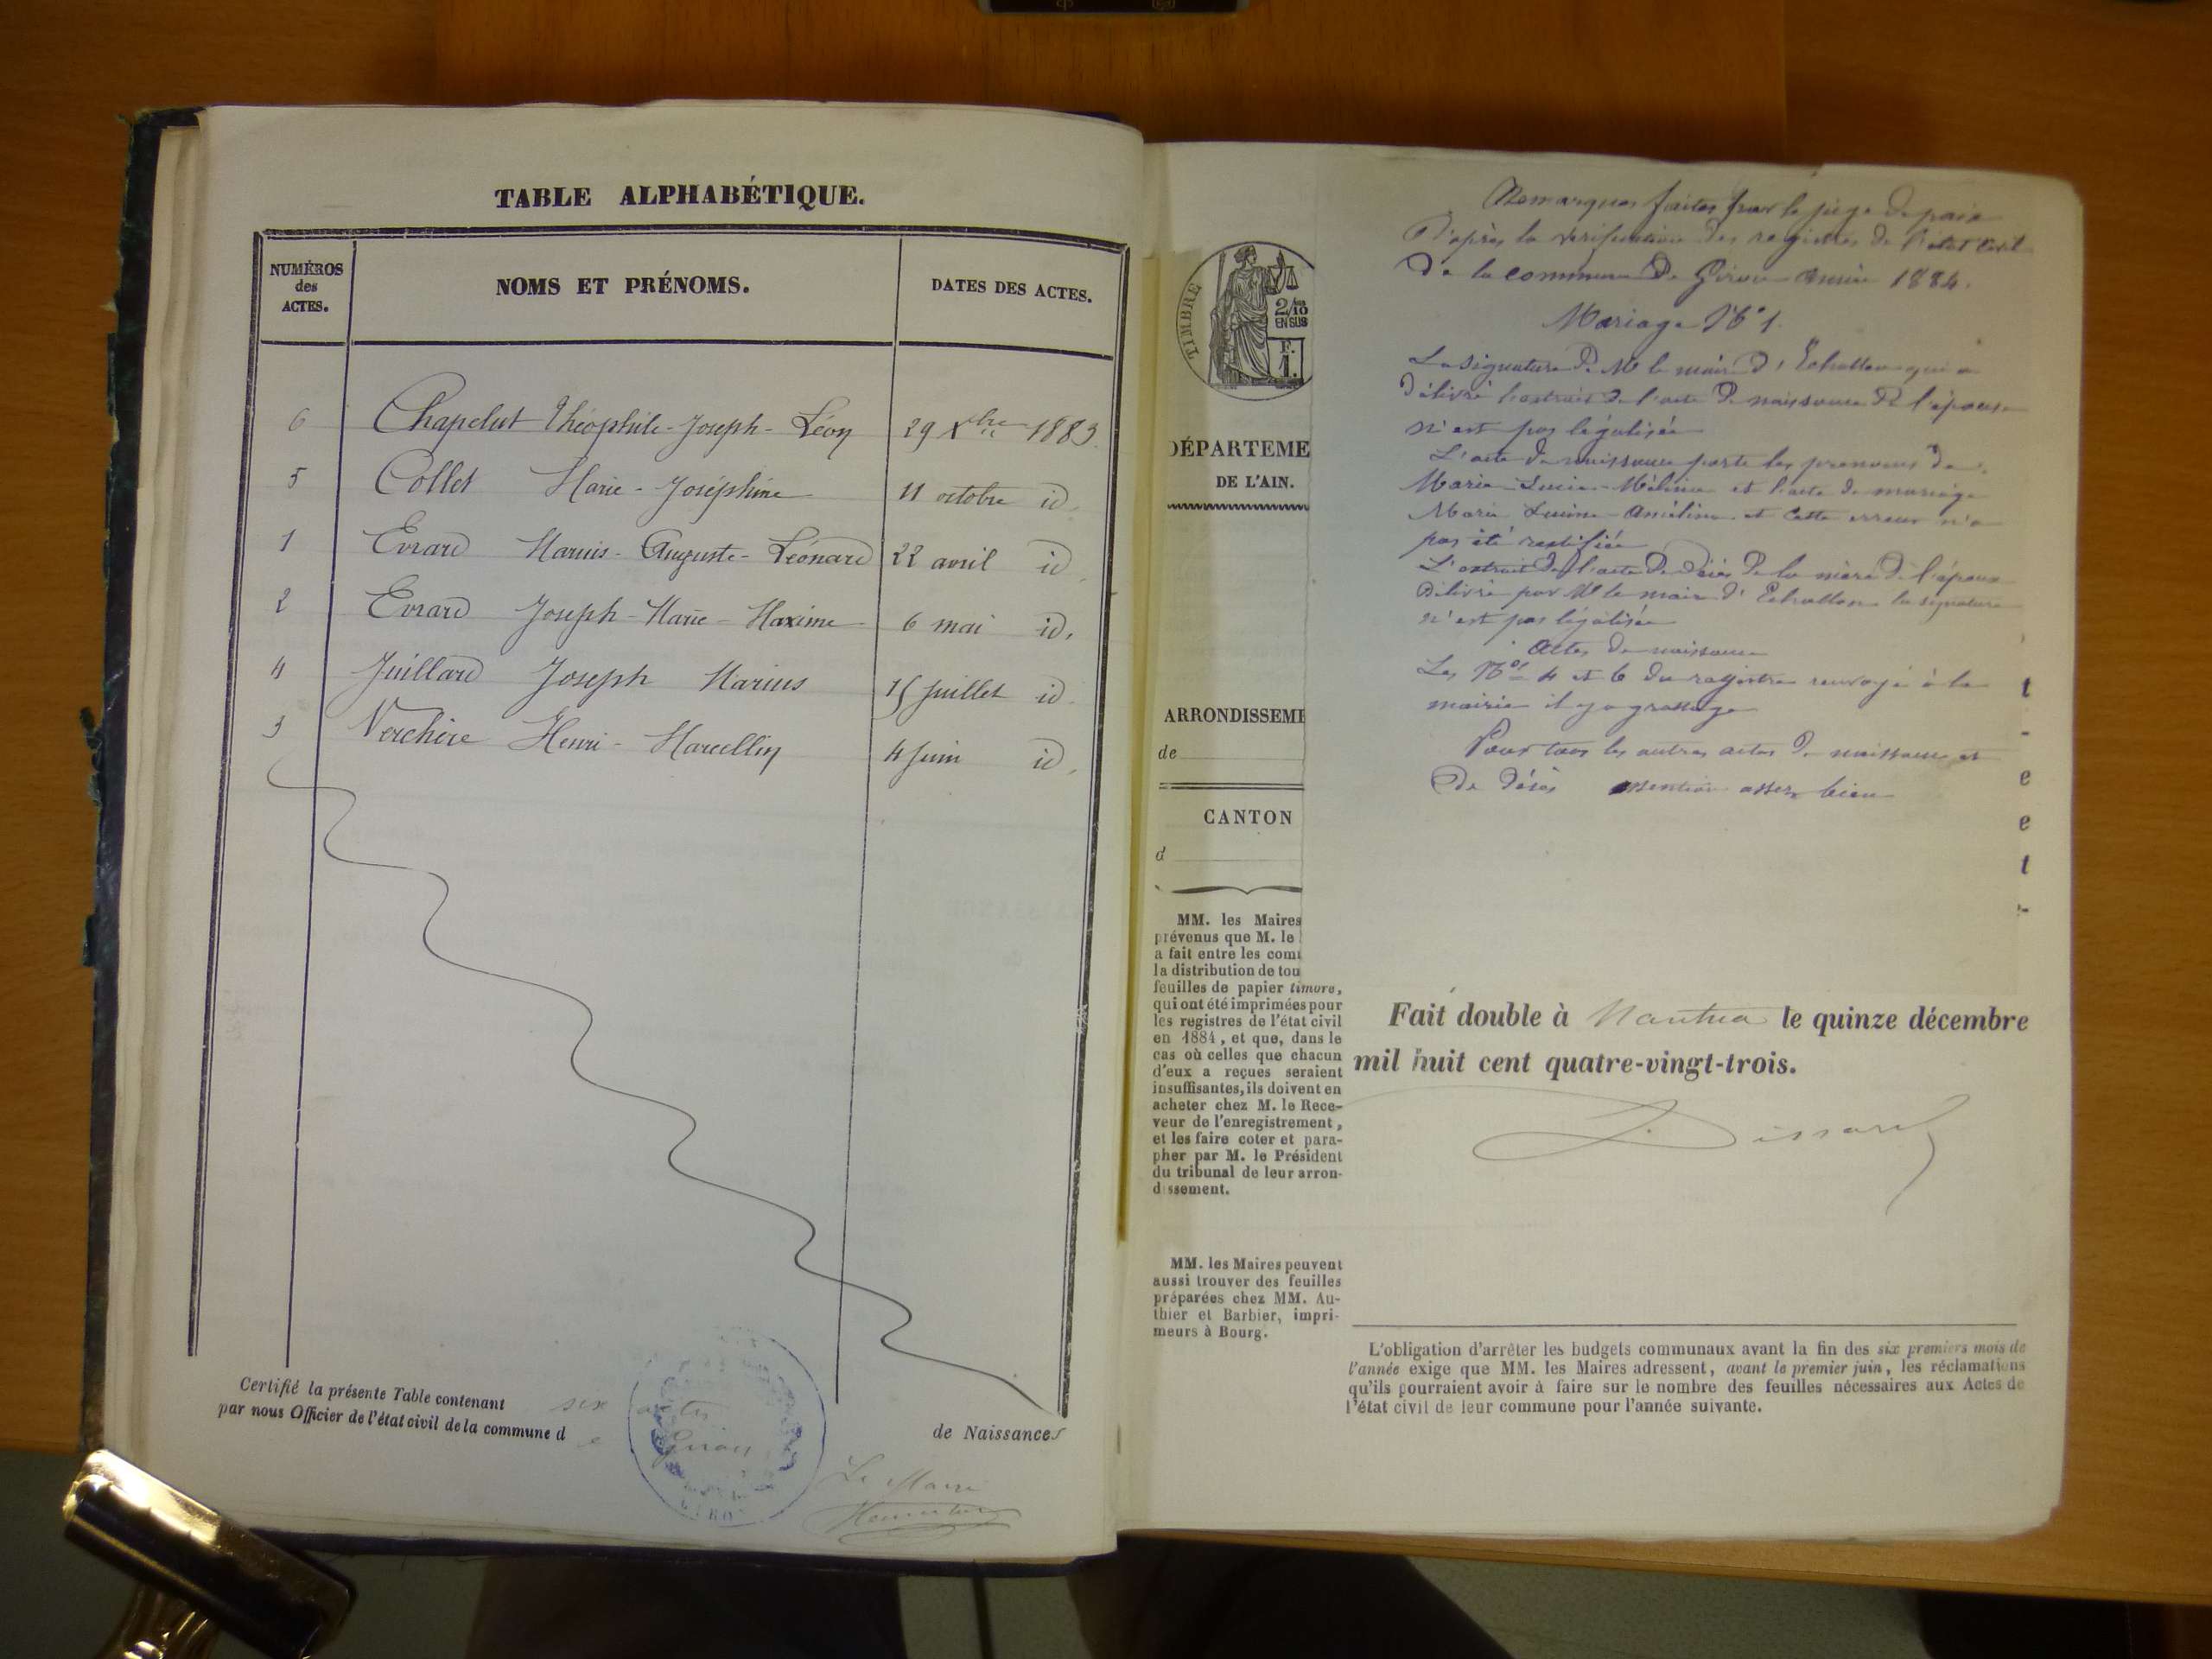 TABLE ALPHABÉTIQUE.
NUMÉROS
des
ACTES.
NOMS ET PRÉNOMS.
DATES DES ACTES.
6 Chapelut Théophile-Joseph-Léon 29 Xbre 1883.
5 Collet Marie-Joséphine 11 octobre id.
1 Evrard Marius-Auguste-Léonard 22 avril id.
2 Evrard Joseph-Marie-Maxime 6 mai id.
4 Juillard Joseph Marius 15 juillet id.
3 Verchère Henri-Marcellin 4 juin id.
Certifié la présente Table contenant six actes de Naissances
par nous Officier de l'état civil de la commune de Giron
Le Maire
TIMBRE
2/10
EN SUS
F.
1.
DÉPARTEME
DE L'AIN.
ARRONDISSEME
de
CANTON
d
MM. les Maires
prévenus que M. le
a fait entre les com
la distribution de tou
feuilles de papier timbre,
qui ont été imprimées pour
les registres de l'état civil
en 1884, et que, dans le
cas où celles que chacun
d'eux a reçues seraient
insuffisantes, ils doivent en
acheter chez M. le Rece-
veur de l'enregistrement,
et les faire coter et para-
pher par M. le Président
du tribunal de leur arron-
dissement.
MM. les Maires peuvent
aussi trouver des feuilles
préparées chez MM. Au-
thier et Barbier, impri-
meurs à Bourg.
Remarques faites par le juge de paix
D'après la vérification des registres de l'état civil
De la commune de Giron année 1884.
Mariage N° 1.
La signature de M le maire d'Echallon qui a
délivré l'extrait de l'acte de naissance de l'épouse
n'est pas légalisée
L'acte de naissance porte les prénoms de
Marie Lucie-Mélina et l'acte de mariage
Marie et cette erreur n'a
pas été rectifiée
L'extrait de l'acte de décès de la mère de l'époux
délivré par M le maire d'Echallon la signature
n'est pas légalisée
Actes de naissance
Les Nos 4 et 6 du registre renvoyé à la
mairie il y a grattage
Pour tous les autres actes de naissance et
De décès mention assez bien
t
-
e
e
t
Fait double à Nantua le quinze décembre
mil huit cent quatre-vingt-trois.
L'obligation d'arrêter les budgets communaux avant la fin des six premiers mois de
l'année exige que MM. les Maires adressent, avant le premier juin, les réclamations
qu'ils pourraient avoir à faire sur le nombre des feuilles nécessaires aux Actes de
l'état civil de leur commune pour l'année suivante.